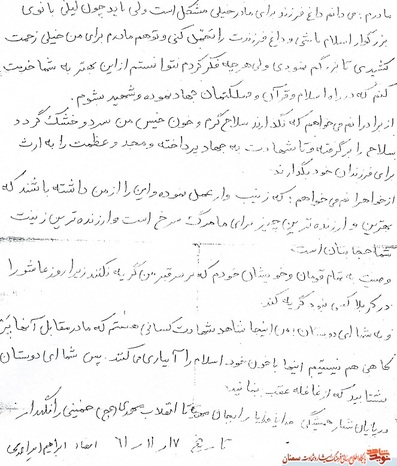 مادرم: می دانم داغ فرزند برای مادر خیلی مشکل است ولی باید چون لیلی بانوی
بزرگوار اسلام باشی و داغ فرزندت را تحمل کنی و تو هم مادرم برای من خیلی زحمت
کشیدی تا بزرگم نمودی ولی هر چه فکر کردم نتوانستم از این بهتر به شما خدمت
کنم که در راه اسلام و قرآن و مملکتمان جهاد نموده و شهید شوم.
از برادرانم می خواهم که نگذارند سلاح گرم و خون خیس من سرد و خشک گردد
سلاحم را برگرفته و تا شهادت به جهاد پرداخته و مجد و عظمت را به ارث
برای فرزندان خود بگذارند.
از خواهرانم می خواهم: که زینب وار عمل نموده و این را از من داشته باشند که
بهترین و ارزنده ترین چیز برای ما مرگ سرخ است و ارزنده ترین زینت
شما حجابتان است.
وصیت به تمام قومان و خویشان خودم که بر سر قبر من گریه نکنند زیرا روز عاشورا
در کربلا کسی نبود گریه کند.
و به شما ای دوستان: من اینجا شاهد شهادت کسانی هستم که ما در مقابل آنها
کاهی هم نیستیم اینها با خون خود اسلام را آبیاری می کنند. پس شما ای دوستان
بشتابید که از قافله عقب نمانید.
در پایان شعار همیشگی خدایا خدایا تا انقلاب مهدی خمینی را نگهدار
تاریخ ۱۷ / ۱۱ / ۶۱ امضاء ابراهیم